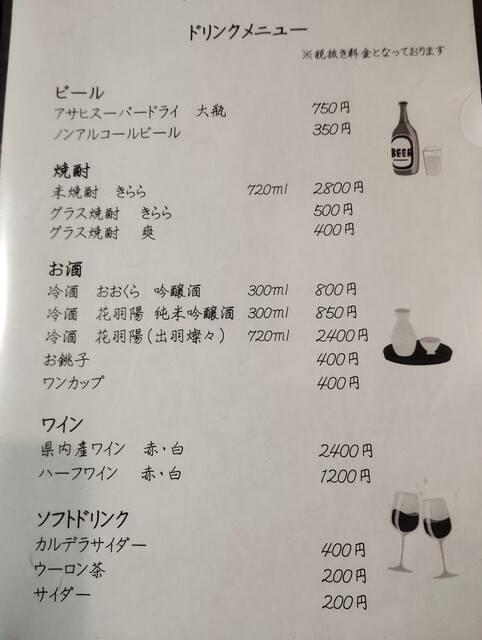 ドリンクメニュー
※税抜き料金となっております
ビール
アサヒスーパードライ 大瓶 750円
ノンアルコールビール 350円
BEER
焼酎
米焼酎 きらら 720ml 2800円
グラス焼酎 きらら 500円
グラス焼酎 爽 400円
お酒
冷酒 おおくら 吟醸酒 300ml 800円
冷酒 花羽陽 純米吟醸酒 300ml 850円
冷酒 花羽陽(出羽燦々) 720ml 2400円
お銚子 400円
ワンカップ 400円
ワイン
県内産ワイン 赤・白 2400円
ハーフワイン 赤・白 1200円
ソフトドリンク
カルデラサイダー 400円
ウーロン茶 200円
サイダー 200円